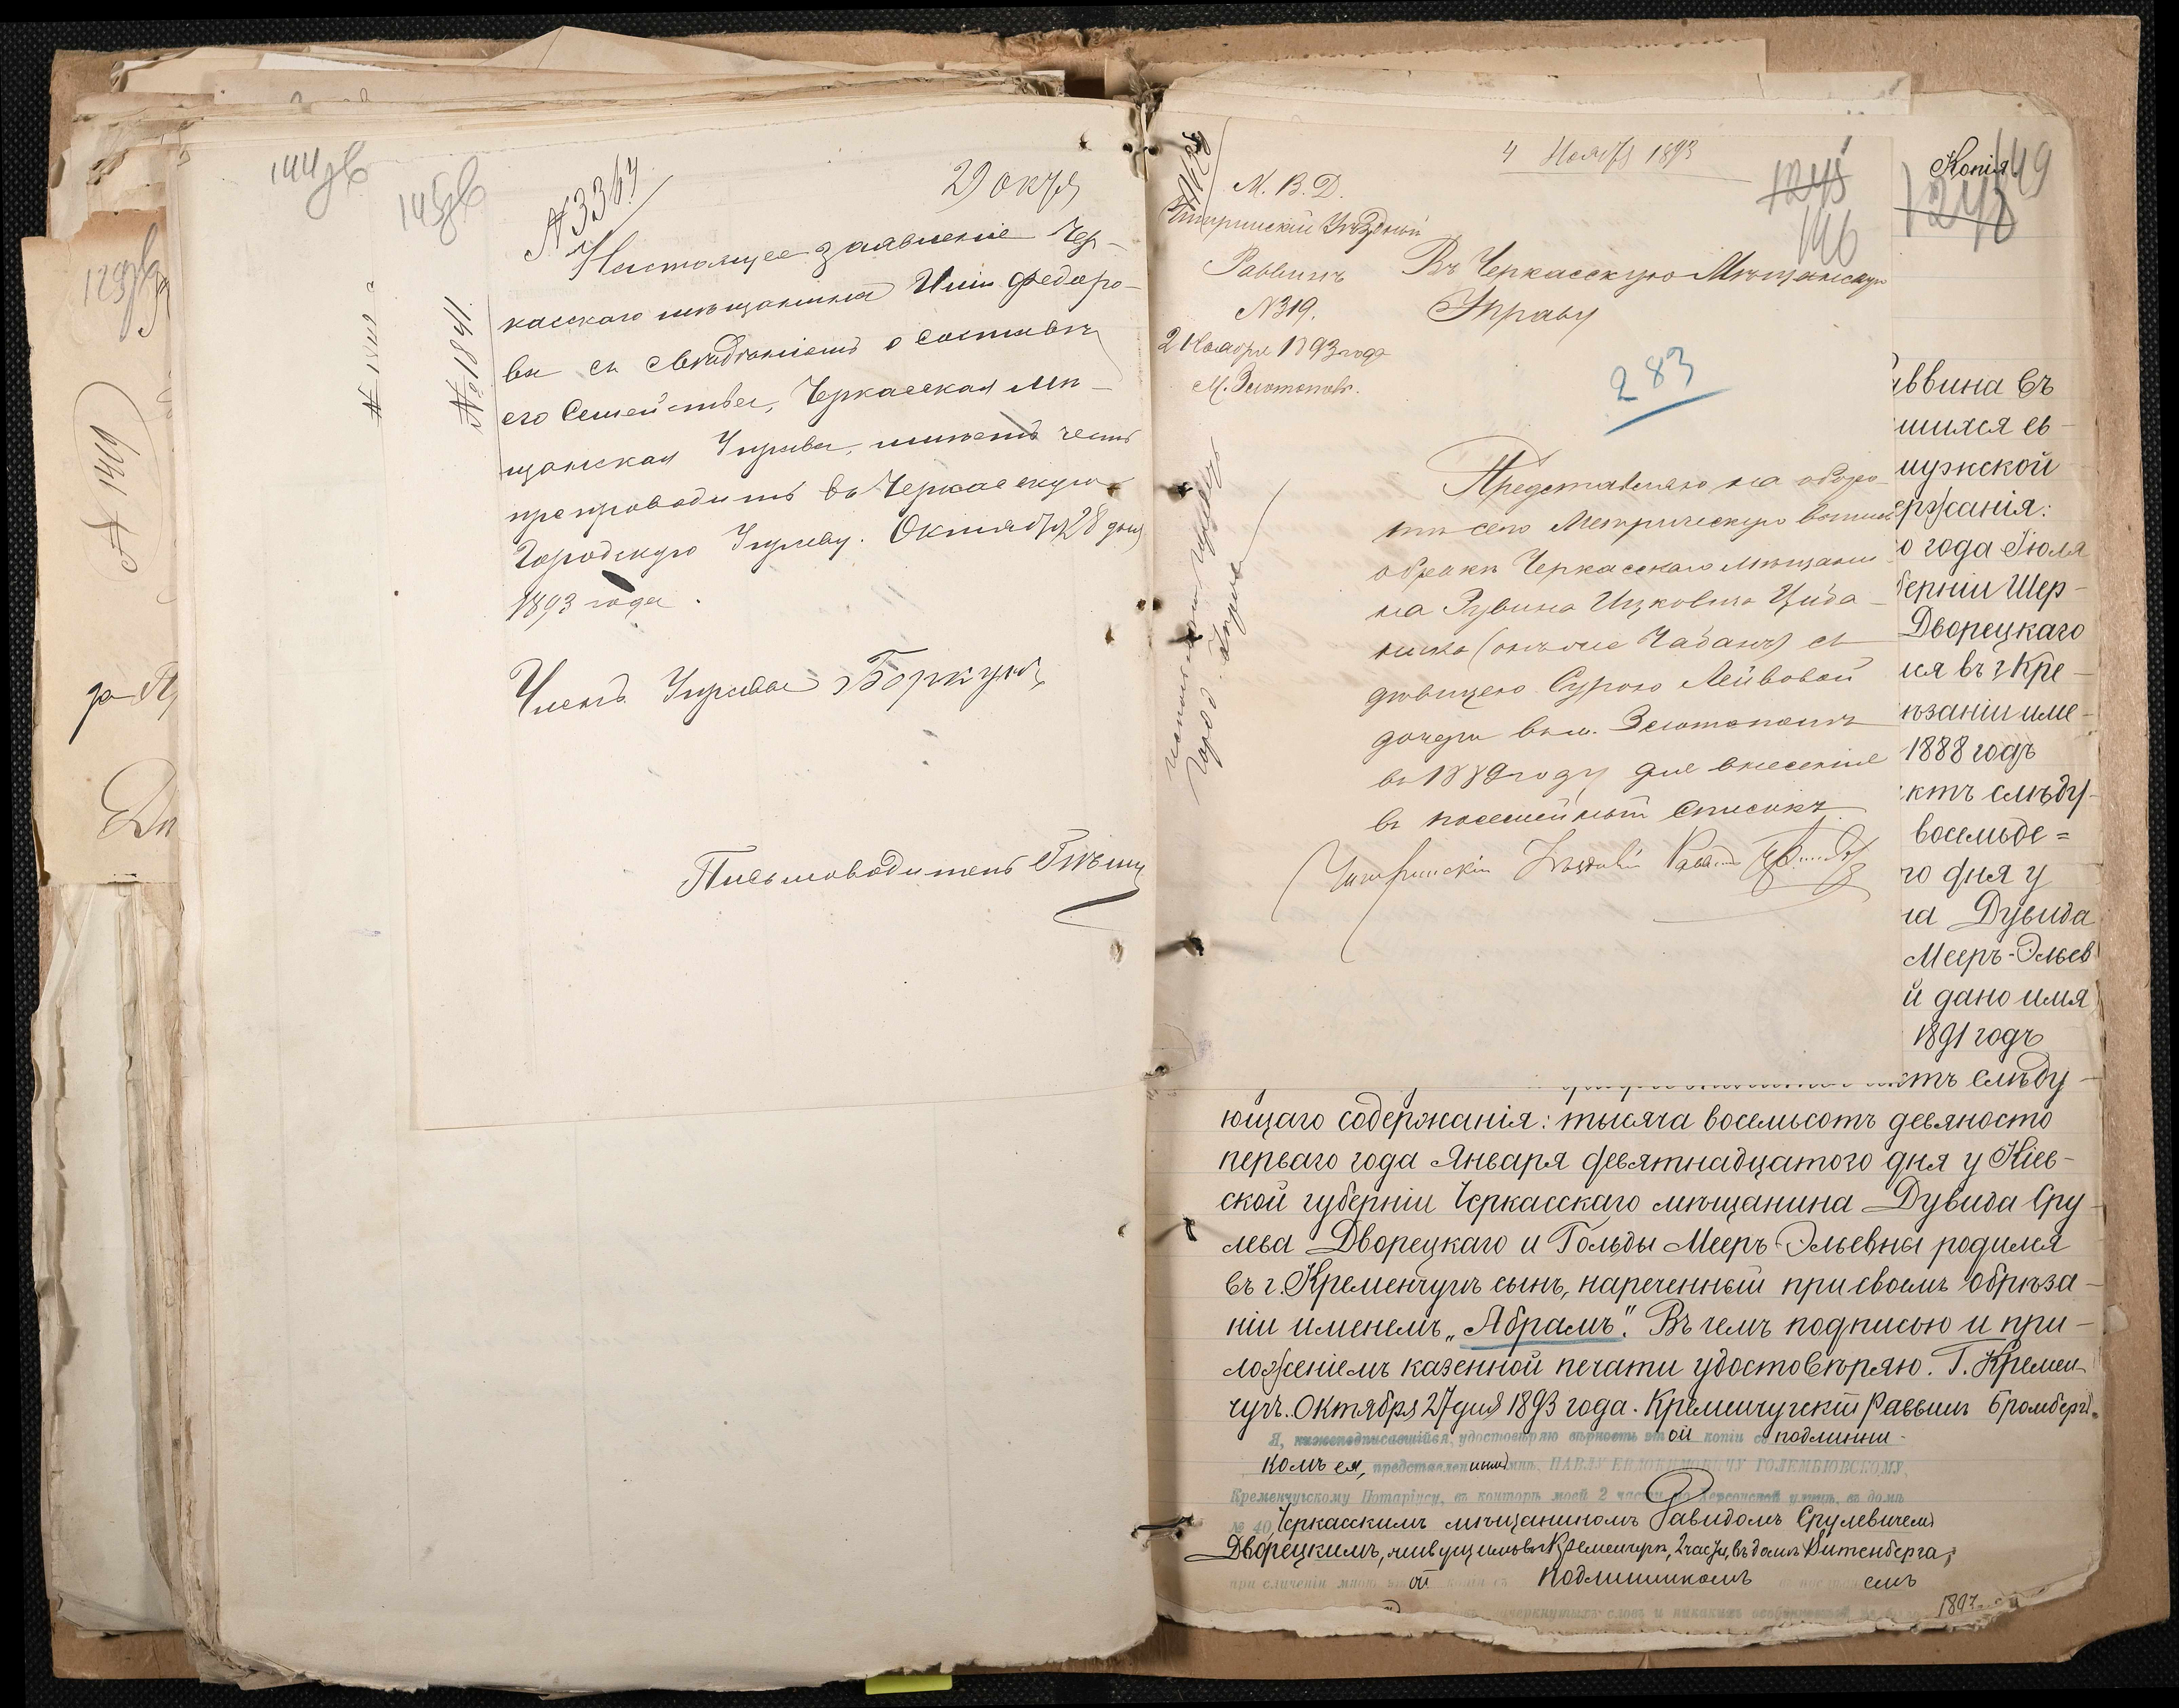 144об
145об
129об
№ 1419
№ 3367
29 окт
№ 1841.
Настоящее заявленіе Чер-
касскаго мѣщанина Федоро-
ва съ свѣдѣніемъ о составѣ
его семейства, Черкасская Мѣ-
щанская Управа, имѣетъ честь
препроводить въ Черкасскую
Городскую Управу. Октября 28 дня
1893 года.
Членъ Управы
Письмоводитель
4 Ноября 1893
1245
146
М. В. Д.
Чигиринскій Уѣздный
Раввинъ
№ 319.
2 Ноября 1893 года
М. Златополь.
Въ Черкасскую Мѣщанскую
Управу
283
Представляю на оборо-
тѣ сего Метрическую выпись
о бракѣ Черкасскаго мѣщани-
на Рувина Ицковича Цыба-
ника (онъ же Чабанъ) съ
дѣвицею Сурою Лейбовой
дочери въ м. Златополѣ
въ 1889 году для внесенія
въ посемейный списокъ
Чигиринскій Уѣздный Раввинъ
Копія
149
1248
аввина въ
шихся ев-
мужской
ержанія:
о года Іюля
берніи Шер-
Дворецкаго
ся въ г. Кре-
ѣзаніи име-
1888 годъ
ктъ слѣду-
восемьде=
го дня у
на Дувида
Мееръ-Эльев
й дано имя
1891 годъ
ктъ слѣду-
ющаго содержанія: тысяча восемьсотъ девяносто
перваго года Января девятнадцатого дня у Кіев-
ской губерніи Черкасскаго мѣщанина Дувида Сру-
лева Дворецкаго и Гольды Мееръ-Эльевны родился
въ г. Кременчугѣ сынъ, нареченный при своемъ обрѣза-
ніи именемъ „Абрамъ". Въ чемъ подписью и при-
ложеніемъ казенной печати удостовѣряю. Г. Кремен-
чугъ. Октября 27 дня 1893 года. Кременчугскій Раввинъ Бромбергъ.
Я, нижеподписавшійся, удостовѣряю вѣрность этой копіи съ подлинни-
комъ ея, представленнымъ мнѣ, ПАВЛУ ЕВДОКИМОВИЧУ ГОЛЕМБІОВСКОМУ,
Кременчугскому Нотаріусу, въ конторѣ моей 2 части по Херсонской улицѣ, въ домѣ
№ 40, Черкасскимъ мѣщаниномъ Давидомъ Срулевичемъ
Дворецкимъ, живущимъ въ Кременчугѣ, 2 части, въ домѣ Витенберга,
при сличеніи мною этой копіи съ подлинникомъ въ послѣднемъ
зачеркнутыхъ словъ и никакихъ особенностей